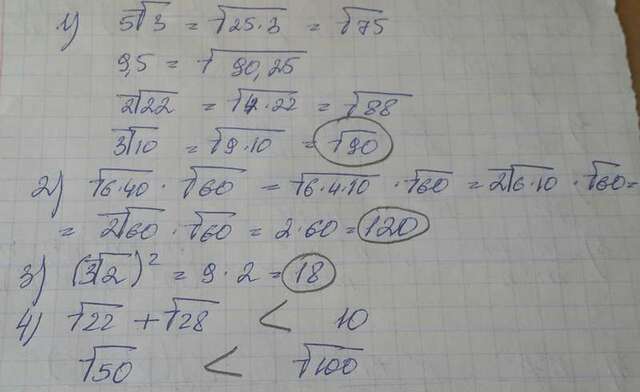 1) 5√3 = √25·3 = √75
9,5 = √90,25
2√22 = √4·22 = √88
3√10 = √9·10 = √90
2) √6·40 · √60 = √6·4·10 · √60 = 2√6·10 · √60 =
= 2√60 · √60 = 2·60 = 120
3) (3√2)² = 9·2 = 18
4) √22 + √28 < 10
√50 < √100